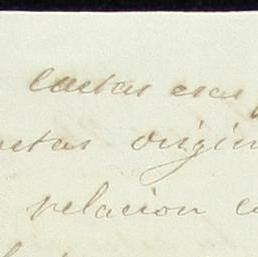 cartas esas
etas origin
relacion c